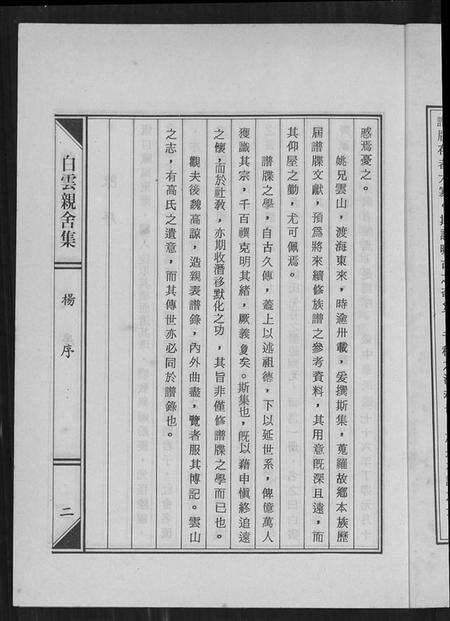 慼焉憂之。
姚兄雲山，渡海東來，時逾卅載，爰撰斯集，蒐羅故鄉本族歷
屆譜牒文獻，預為將來續修族譜之參考資料，其用意旣深且遠，而
其仰屋之勤，尤可佩焉。
譜牒之學，自古久傳，蓋上以述祖德，下以延世系，俾億萬人
獲識其宗，千百禩克明其緒，厥義夐矣。斯集也，旣以藉申愼終追遠
之懷，而於社敎，亦期收潛移默化之功，其旨非僅修譜牒之學而已也。
觀夫後魏高諒，造親表譜錄，內外曲盡，覽者服其博記。雲山
之志，有高氏之遺意，而其傳世亦必同於譜錄也。
白雲親舍集
楊序
二